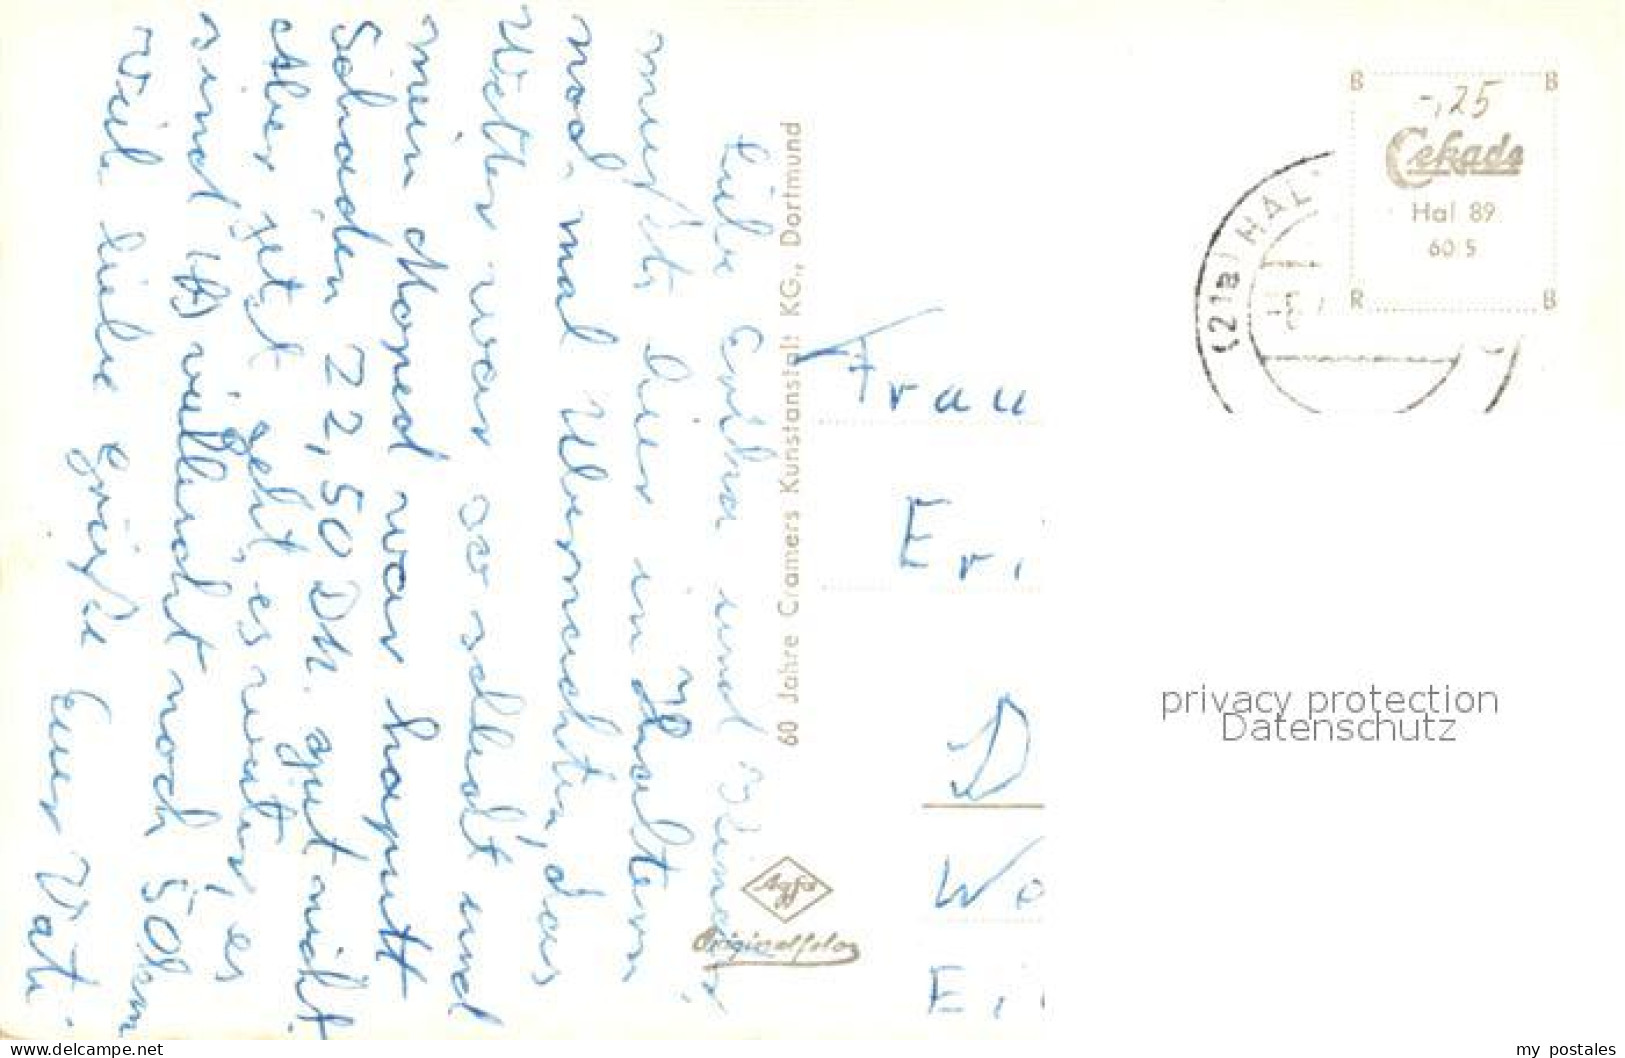 Liebe Erika und Kleiner,
mußte hier in Haltern
noch mal Übernachten, das
Wetter war so schlecht und
mein Moped war kaputt
Schaden 22,50 DM. gut nicht
Aber jetzt geht, es weiter, es
sind vielleicht noch 50km
Viele liebe Grüße Euer Vati.
60 Jahre Cramers Kunstanstalt KG., Dortmund
Agfa
Originalfoto
B B
-,25
Cekade
Hal 89
60 5
R B
(21a) HAL
Frau
Er
D
Wo
Ei
privacy protection
Datenschutz
www.delcampe.net
my_postales